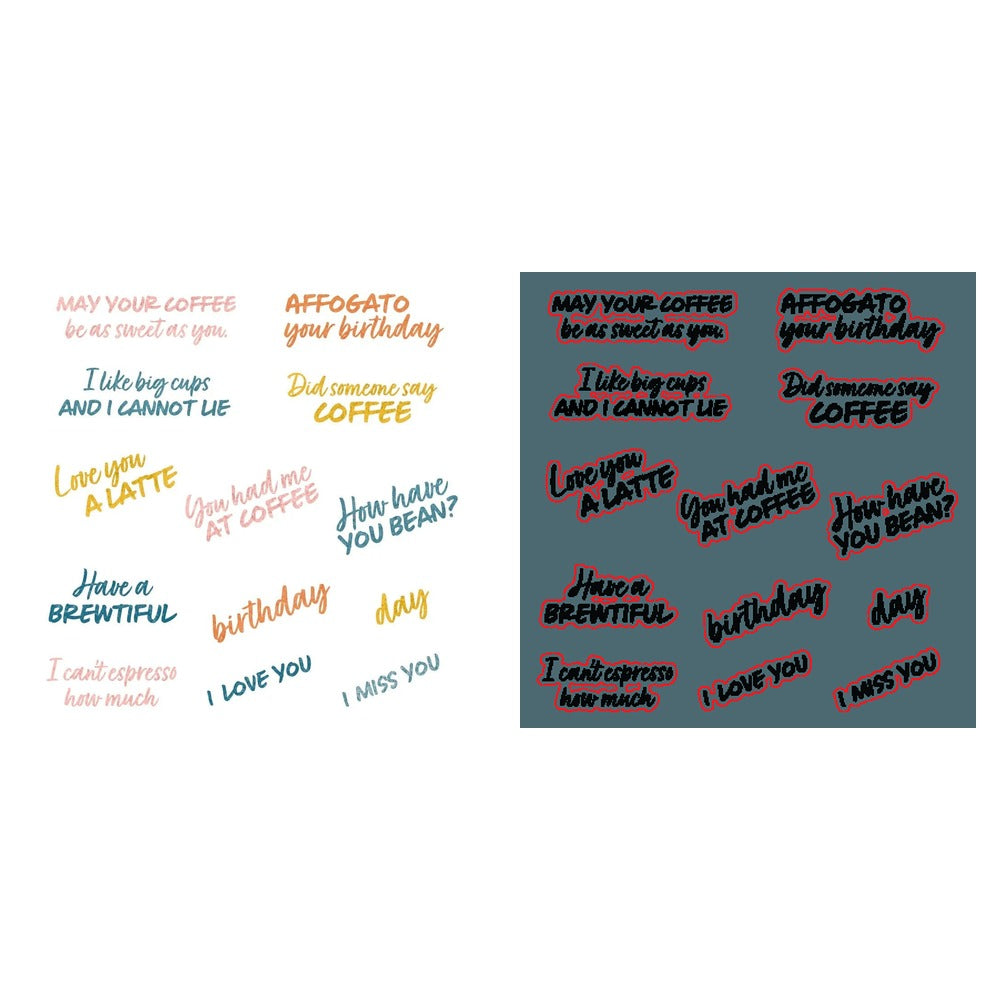 MAY YOUR COFFEE
be as sweet as you.
AFFOGATO
your birthday
I like big cups
AND I CANNOT LIE
Did someone say
COFFEE
Love you
A LATTE
You had me
AT COFFEE
How have
YOU BEAN?
Have a
BREWTIFUL
birthday
day
I can't espresso
how much
I LOVE YOU
I MISS YOU
MAY YOUR COFFEE
be as sweet as you.
AFFOGATO
your birthday
I like big cups
AND I CANNOT LIE
Did someone say
COFFEE
Love you
A LATTE
You had me
AT COFFEE
How have
YOU BEAN?
Have a
BREWTIFUL
birthday
day
I can't espresso
how much
I LOVE YOU
I MISS YOU